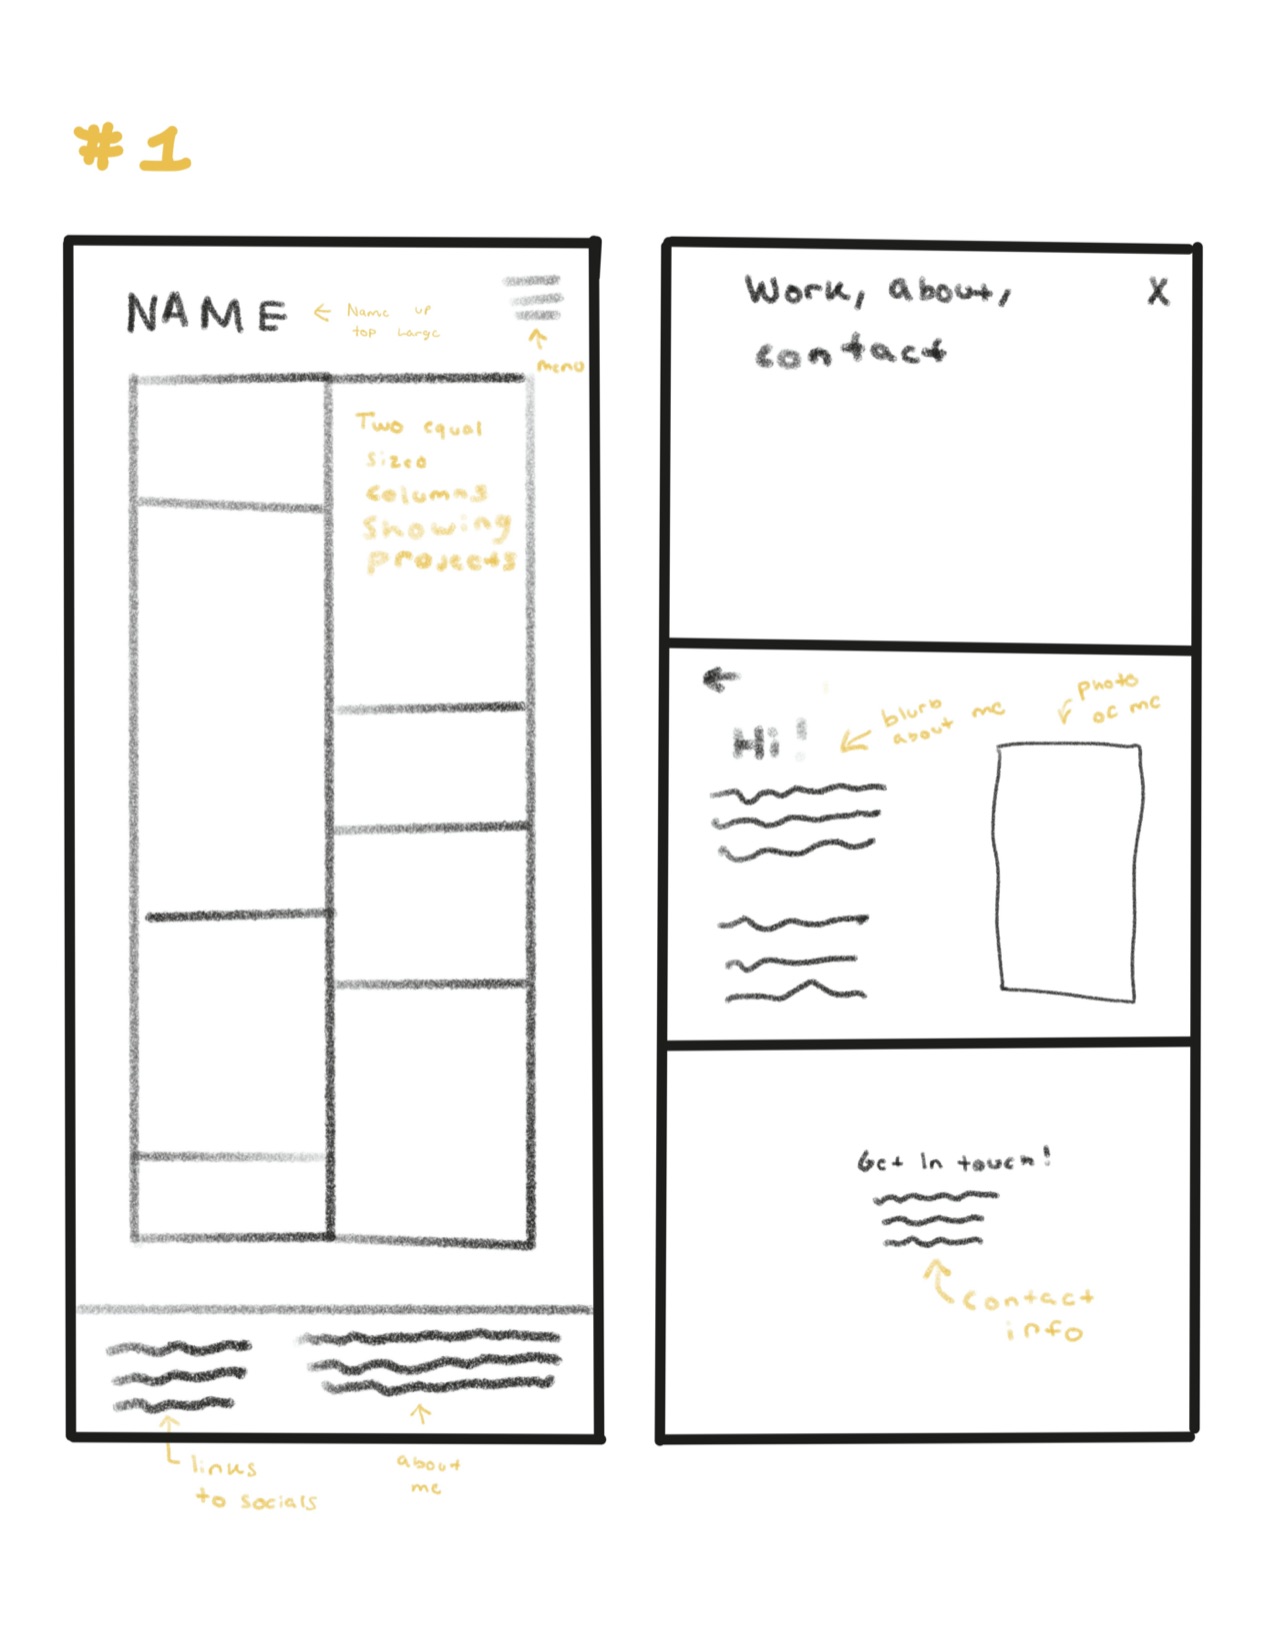 #1
NAME
← Name up
top large
menu
Two equal
sized
columns
showing
projects
links
to socials
about
me
Work, about,
contact
X
Hi!
blurb
about me
photo
of me
Get in touch!
contact
info